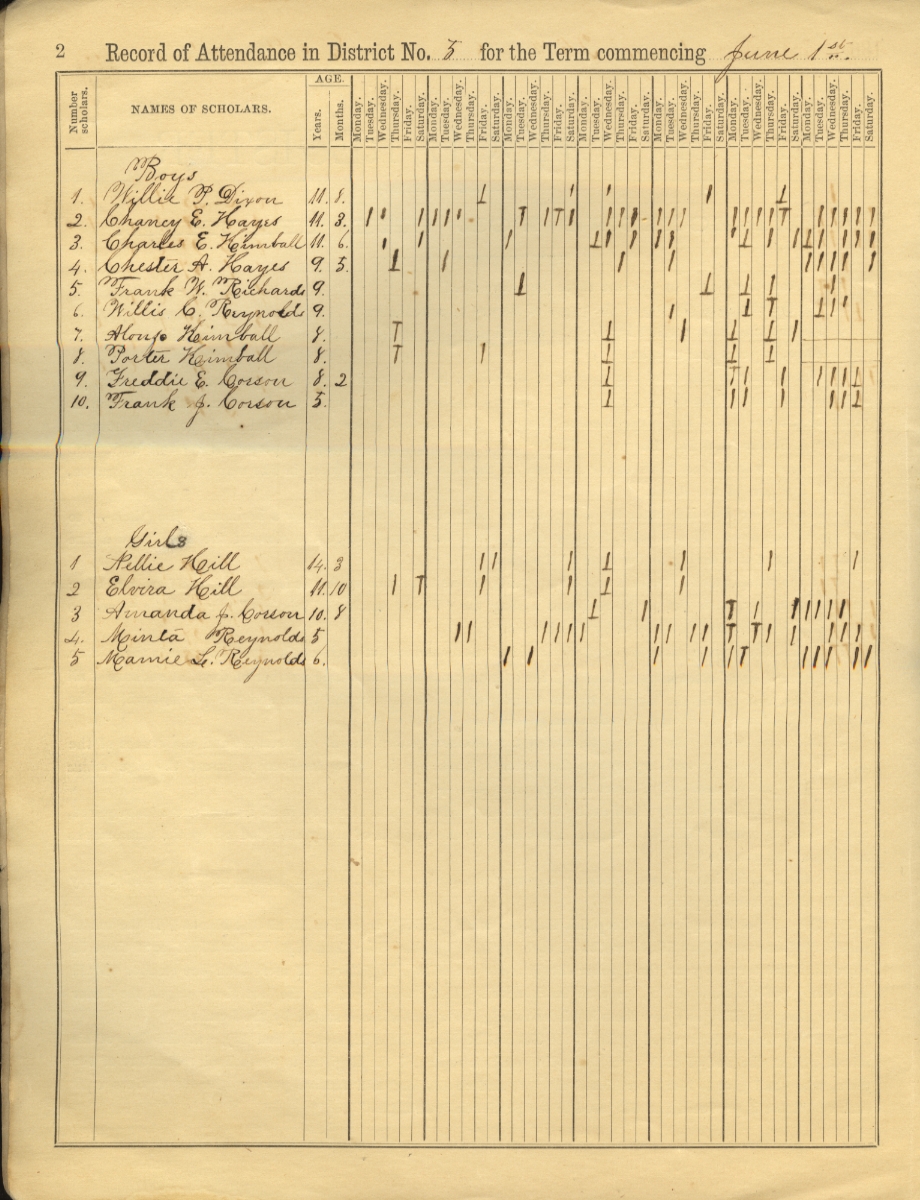 2 Record of Attendance in District No. 5 for the Term commencing June 1st.
Number scholars. NAMES OF SCHOLARS. AGE. Years. Months. Monday. Tuesday. Wednesday. Thursday. Friday. Saturday. Monday. Tuesday. Wednesday. Thursday. Friday. Saturday. Monday. Tuesday. Wednesday. Thursday. Friday. Saturday. Monday. Tuesday. Wednesday. Thursday. Friday. Saturday. Monday. Tuesday. Wednesday. Thursday. Friday. Saturday. Monday. Tuesday. Wednesday. Thursday. Friday. Saturday. Monday. Tuesday. Wednesday. Thursday. Friday. Saturday.
Boys
1. Willie P. Dixon 11. 8.
2. Chancy E. Hayes 11. 3.
3. Charles E. Kimball 11. 6.
4. Chester A. Hayes 9. 5.
5. Frank W. Richards 9.
6. Willis C. Reynolds 9.
7. Alonzo Kimball 8.
8. Porter Kimball 8.
9. Freddie E. Corson 8. 2
10. Frank J. Corson 5.
Girls
1 Nellie Hill 14. 3
2 Elvira Hill 11. 10
3 Amanda J. Corson 10. 8
4. Minta Reynolds 5
5 Mamie L. Reynolds 6.